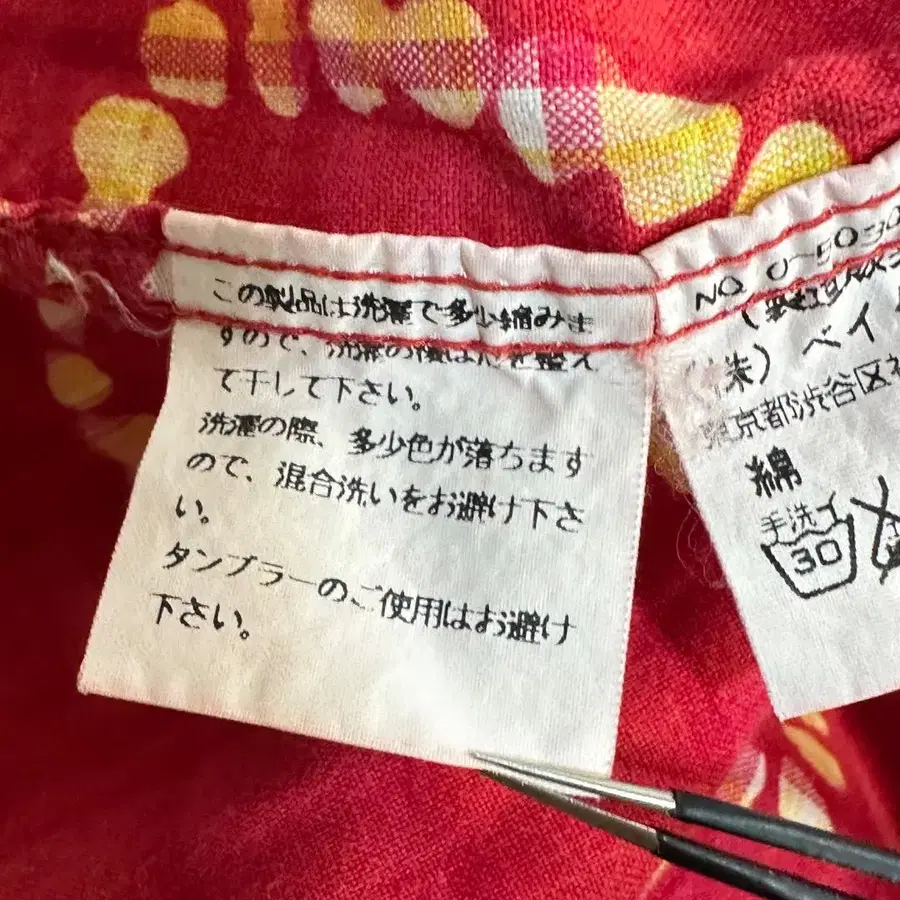 この製品は洗濯で多少縮みま
すので、洗濯の後は形を整え
て干して下さい。
洗濯の際、多少色が落ちます
ので、混合洗いをお避け下さ
い。
タンブラーのご使用はお避け
下さい。
NO. 0-5030
(株) ベイ
東京都渋谷区
綿
手洗イ
30